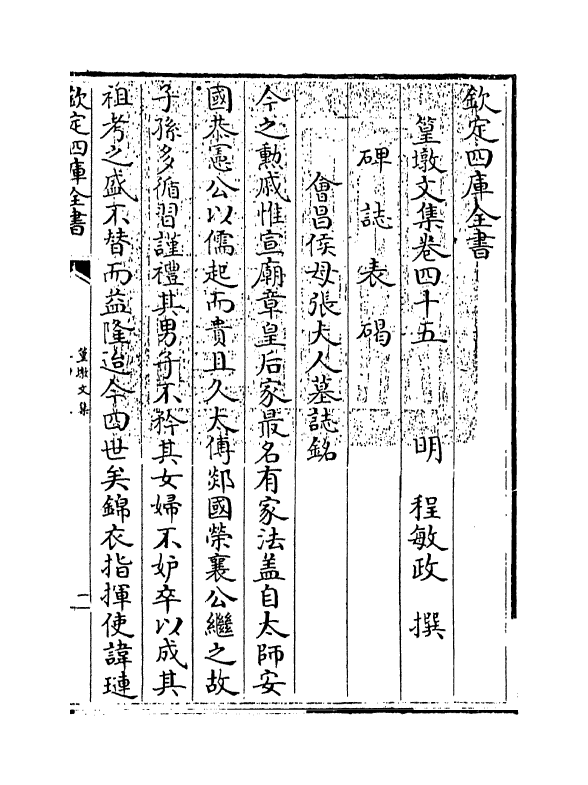 欽定四庫全書
篁墩文集卷四十五 明 程敏政 撰
碑誌表碣
會昌侯母張夫人墓誌銘
今之勲戚惟宣廟章皇后家最名有家法盖自太師安
國恭憲公以儒起而貴且久太傅郯國榮襄公繼之故
子孫多循習謹禮其男子不矜其女婦不妒卒以成其
祖考之盛不替而益隆迨今四世矣錦衣指揮使諱璉
欽定四庫全書
篁墩文集
一